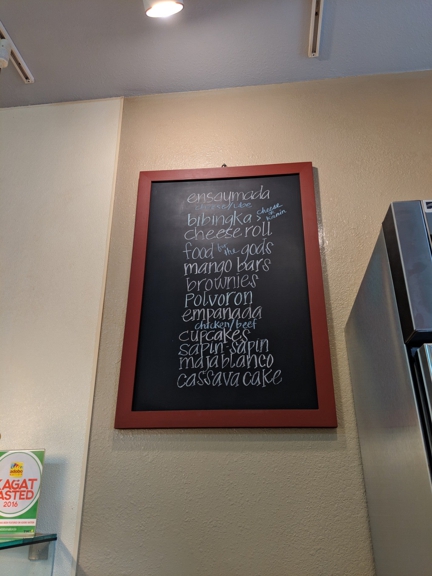 ensaymada
bibingka > cheese
kamin
cheese roll
food by the gods
mango bars
brownies
polvoron
empanada
chicken/beef
cupcakes
sapin sapin
maja blanco
cassava cake
KAGAT
ASTED
2016